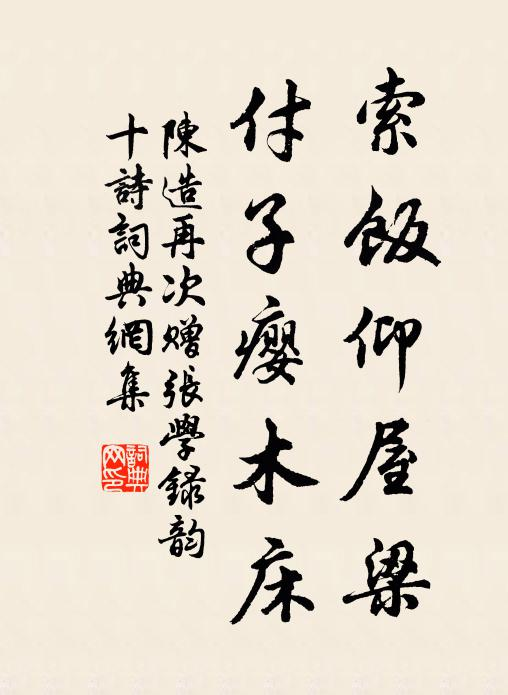 索飯仰屋梁
付子癭木床
陳造再次贈張學録韵
十詩詞典網集
詞典網印